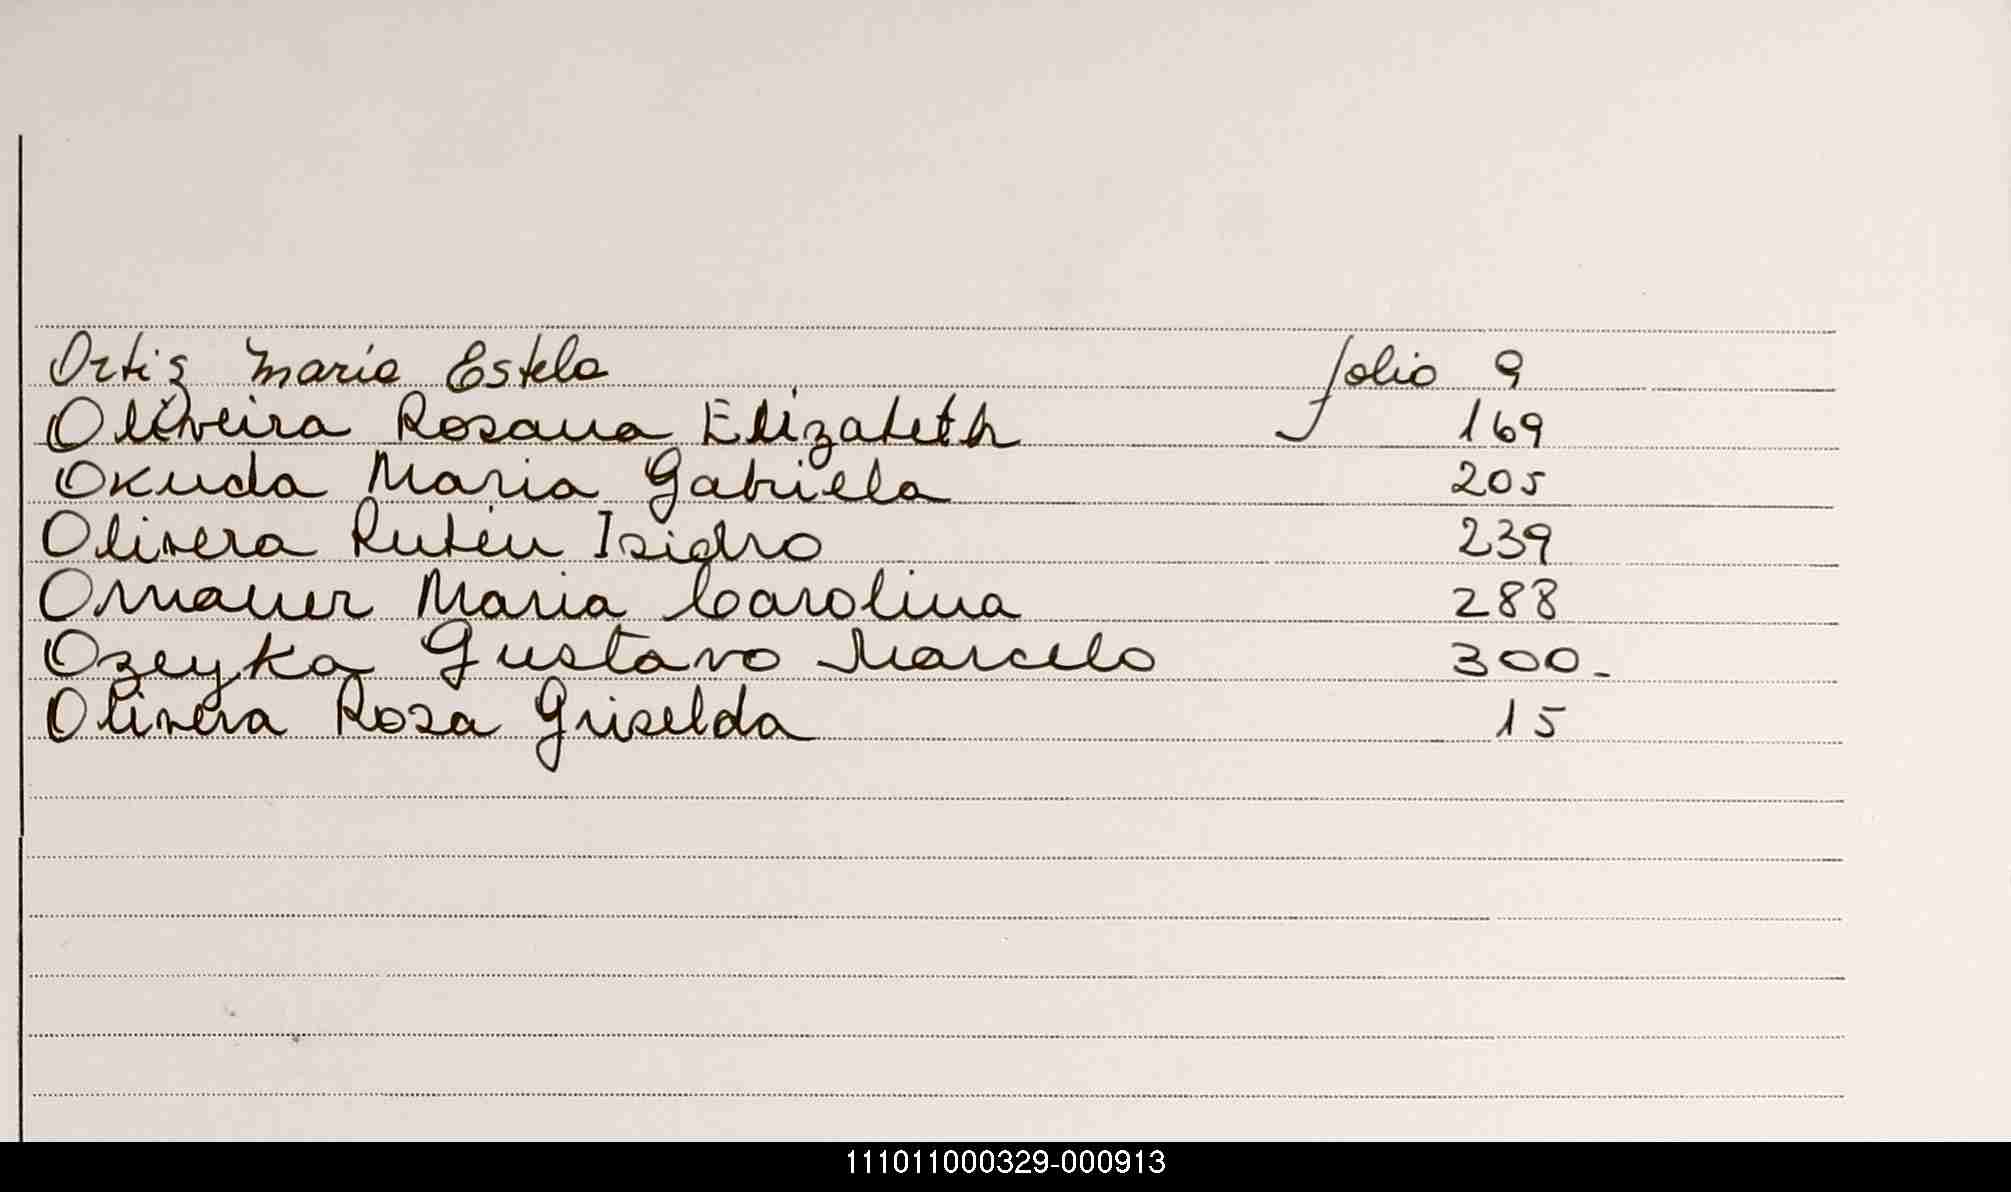 Ortiz Maria Estela folio 9
Oliveira Rosana Elizabeth 169
Okuda Maria Gabriela 205
Olivera Rubén Isidro 239
Omauer Maria Carolina 288
Ozeyka Gustavo Marcelo 300.
Olivera Rosa Griselda 15
111011000329-000913